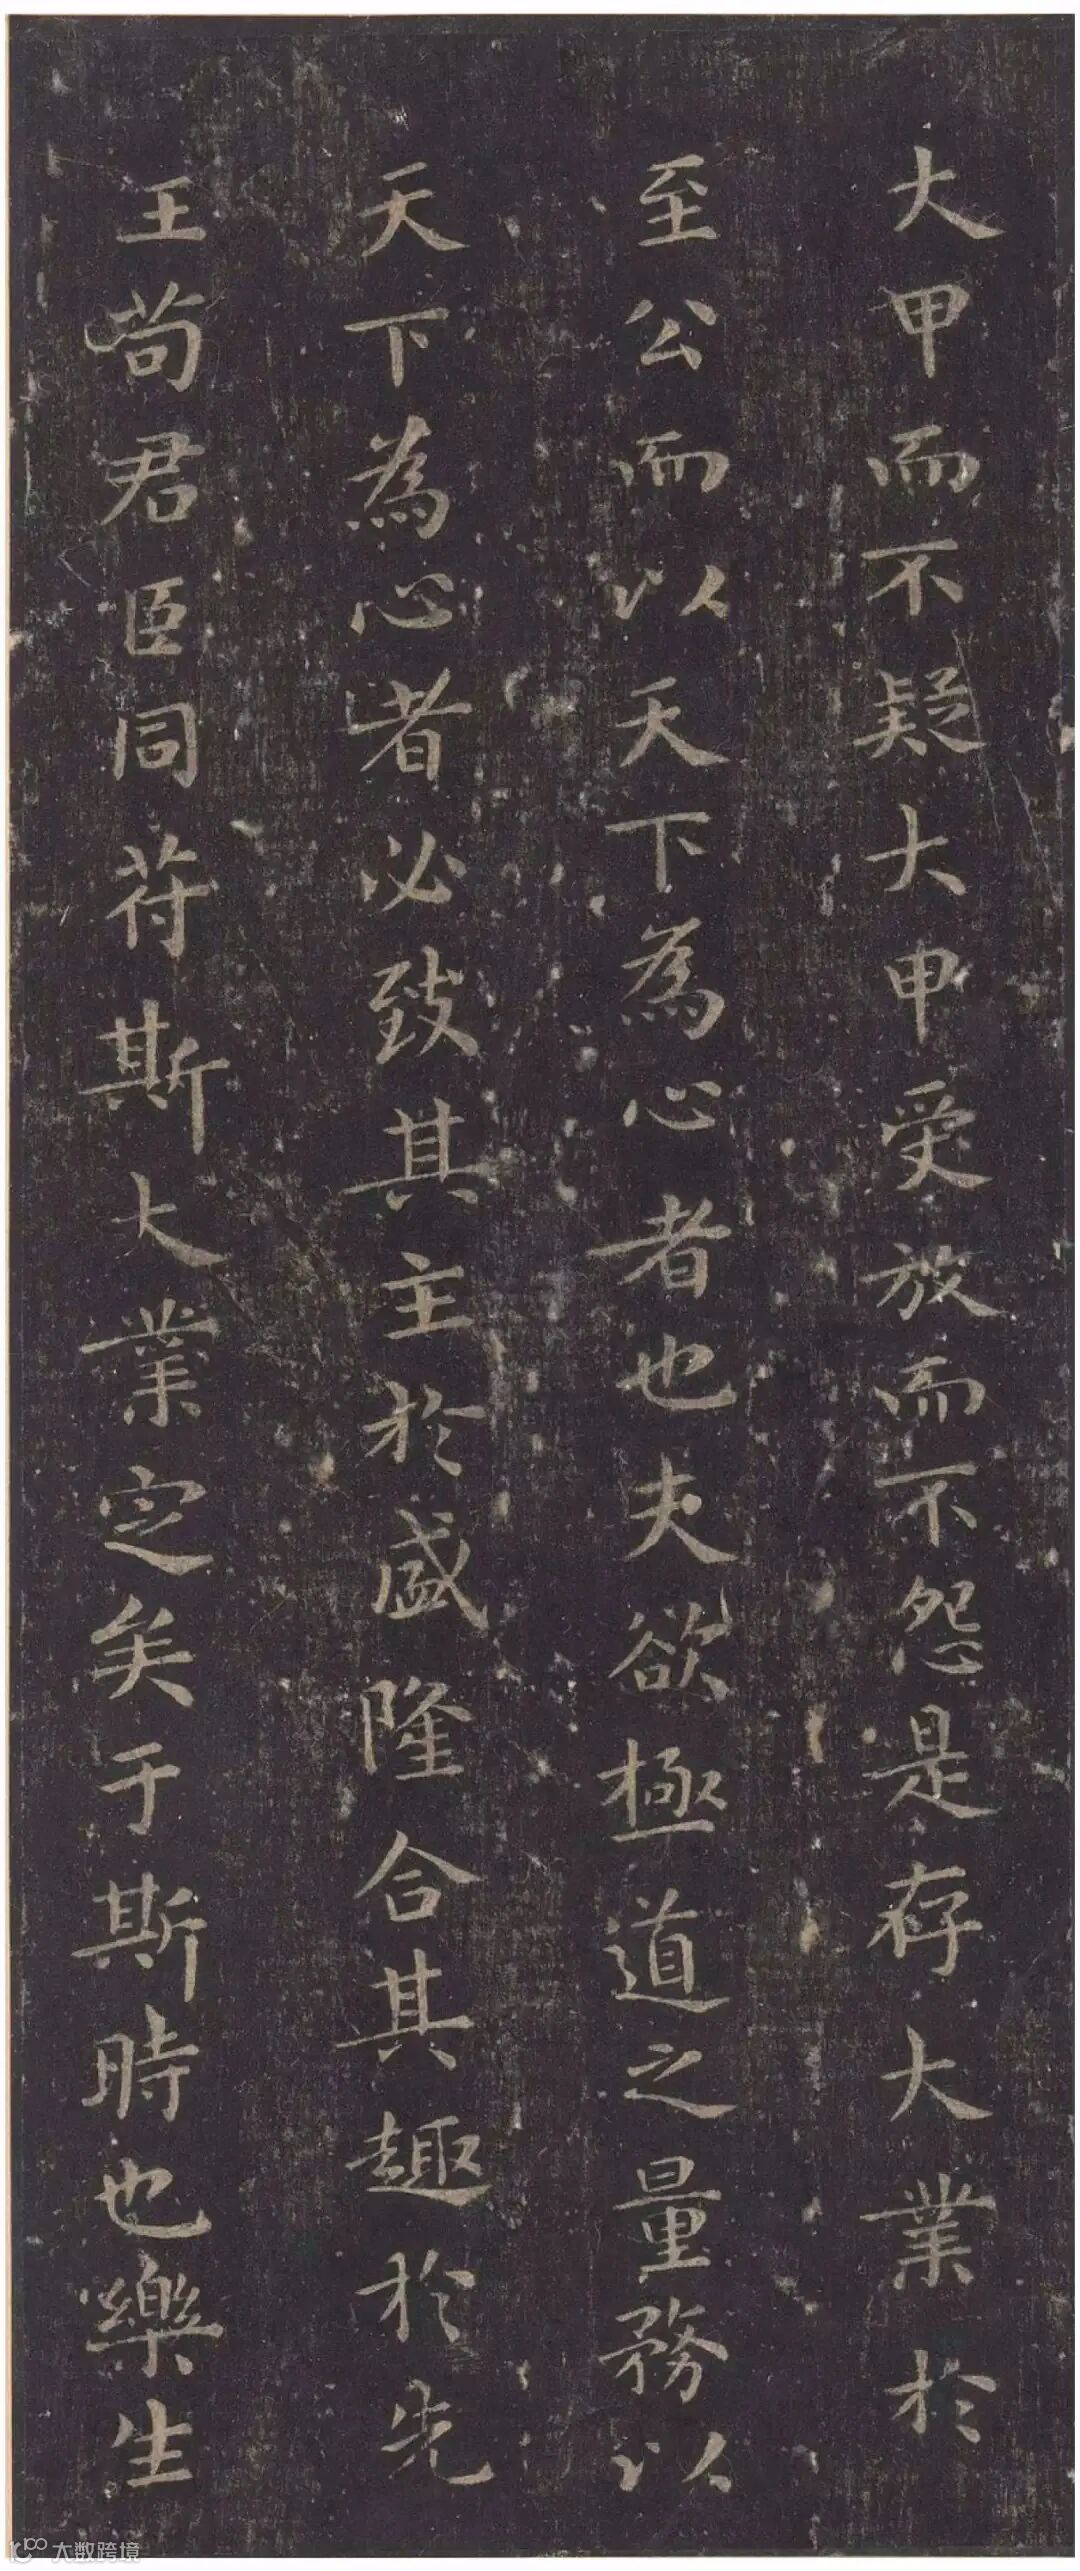 大甲而不疑大甲受放而不怨是存大業於
至公而以天下為心者也夫欲極道之量務以
天下為心者必致其主於盛隆合其趣於先
王苟君臣同苻斯大業定矣于斯時也樂生
大数跨境